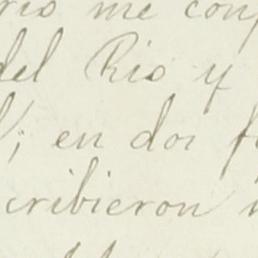 me con
del Rio y
; en dos
cribieron